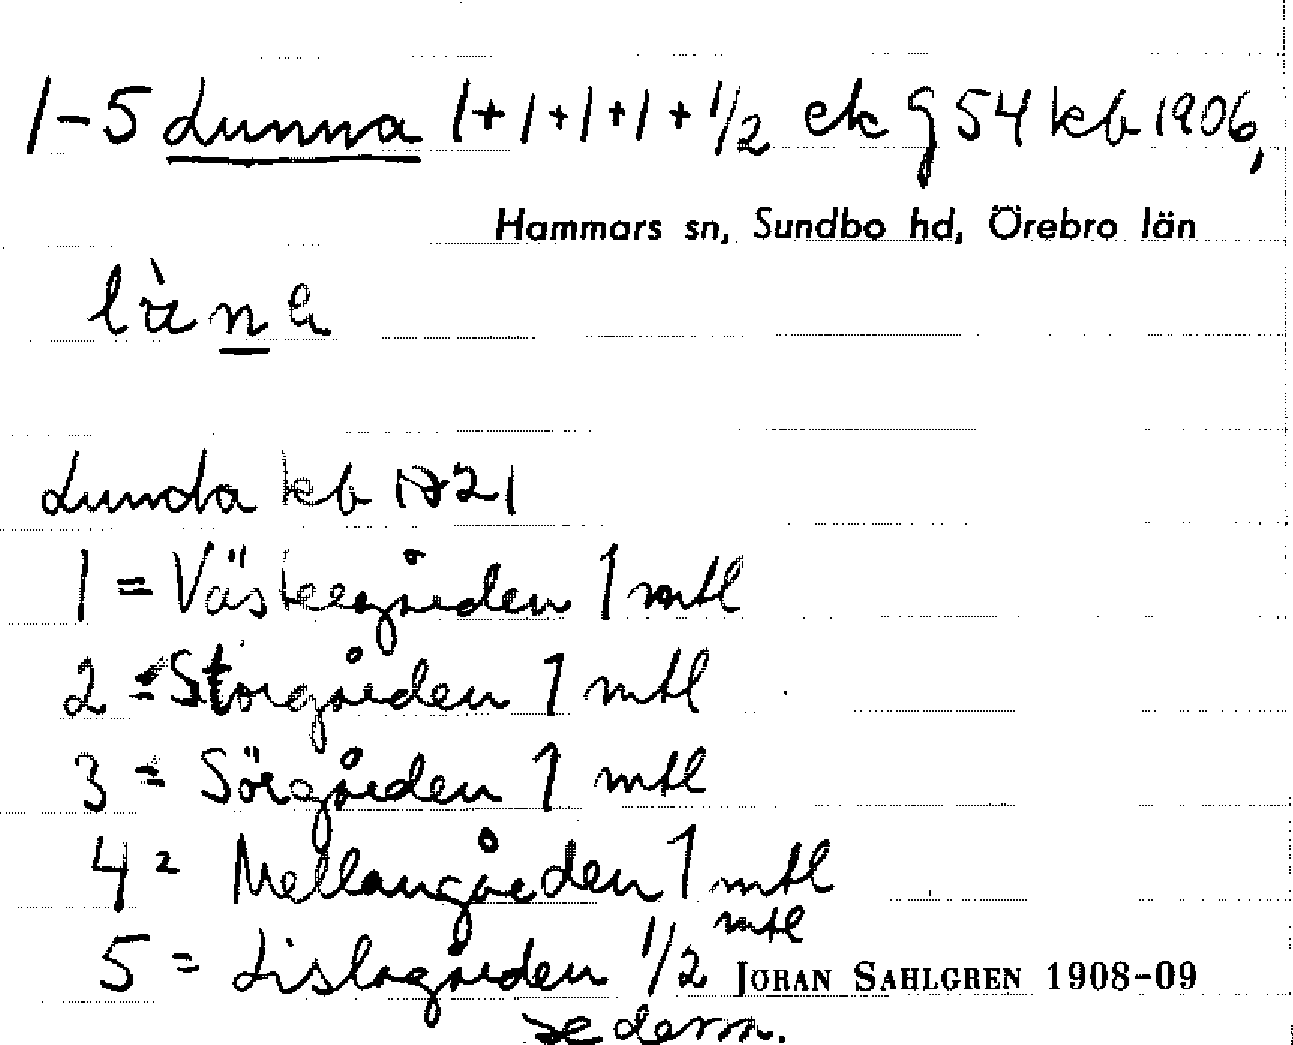 1-5 Lunna 1+1+1+1+1/2 ek g 54 kb 1906,
Hammars sn, Sundbo hd, Örebro län
Lunda kb 1821
1 = Västergården 1 mtl
2 = Storgården 1 mtl
3 = Sörgården 1 mtl
4 = Mellangården 1 mtl
5 = Lislagården 1/2 mtl
JÖRAN SAHLGREN 1908-09
se derm.